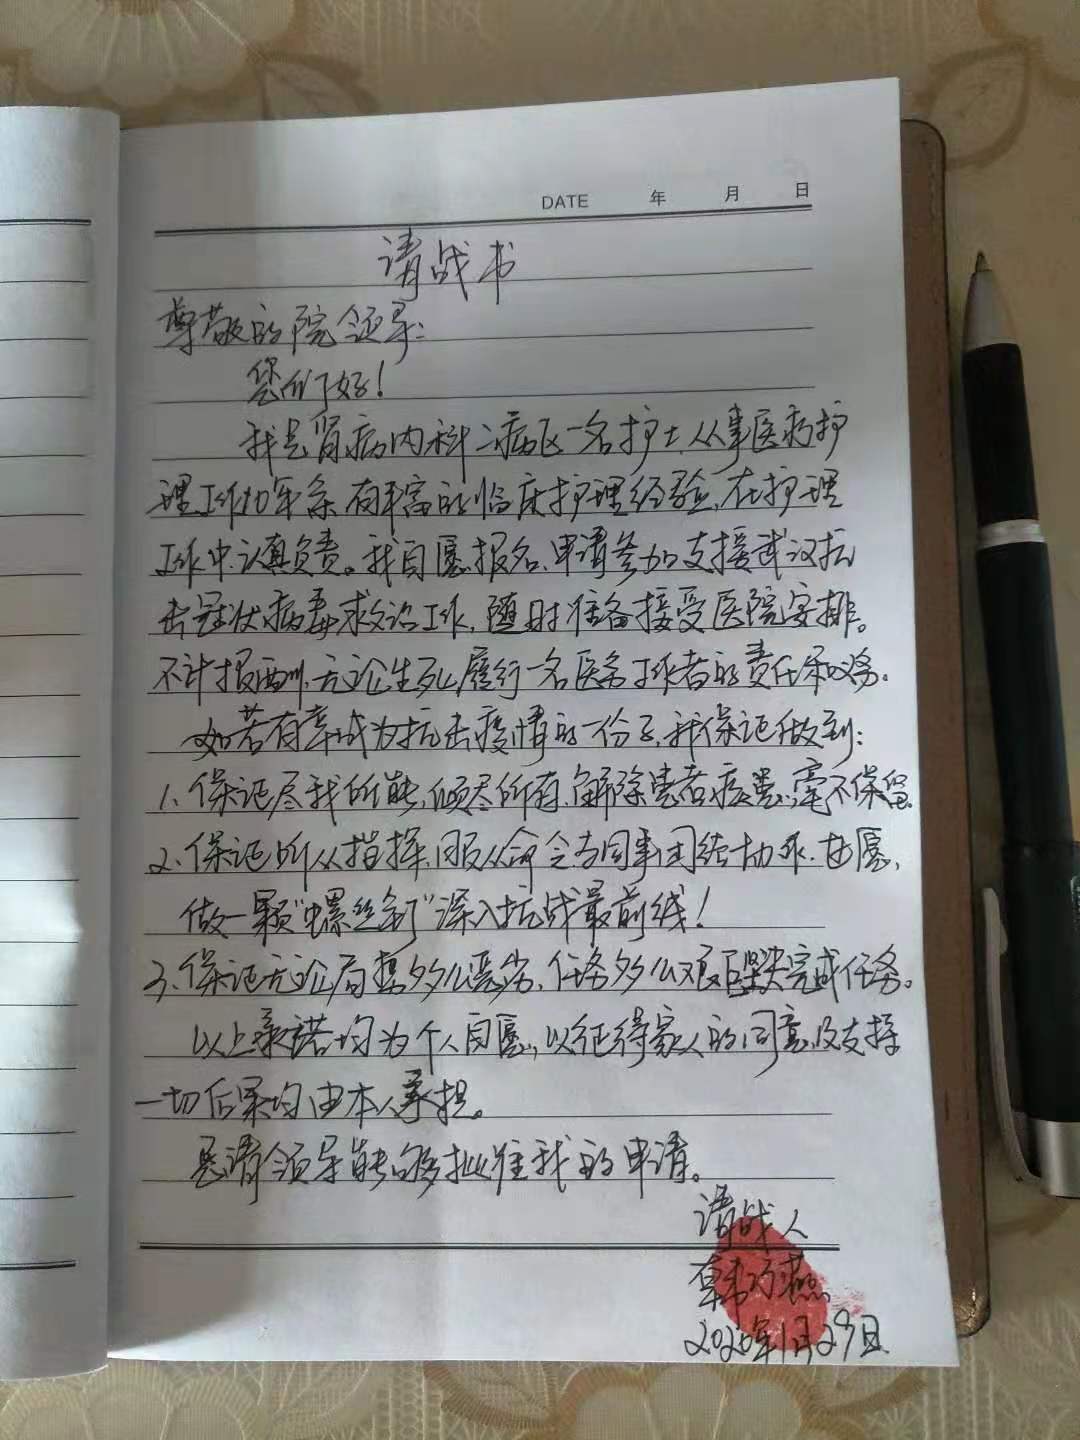 DATE 年 月 日
请战书
尊敬的院领导：
您们好！
我是肾病内科二病区一名护士，从事医疗护
理工作10年余，有丰富的临床护理经验，在护理
工作中认真负责。我自愿报名，申请参加支援武汉抗
击冠状病毒救治工作，随时准备接受医院安排。
不计报酬，无论生死，履行一名医务工作者的责任和义务。
如若有幸成为抗击疫情的一份子，我保证做到：
1、保证尽我所能，倾尽所有，解除患者疾患，毫不保留。
2、保证听从指挥，服从命令与同事团结协作，甘愿，
做一颗"螺丝钉"深入抗战最前线！
3、保证无论局势多么恶劣，任务多么艰巨坚决完成任务。
以上承诺均为个人自愿，以征得家人的同意及支持
一切后果均由本人承担。
恳请领导能够批准我的申请。
请战人
韩巧燕
2020年1月29日